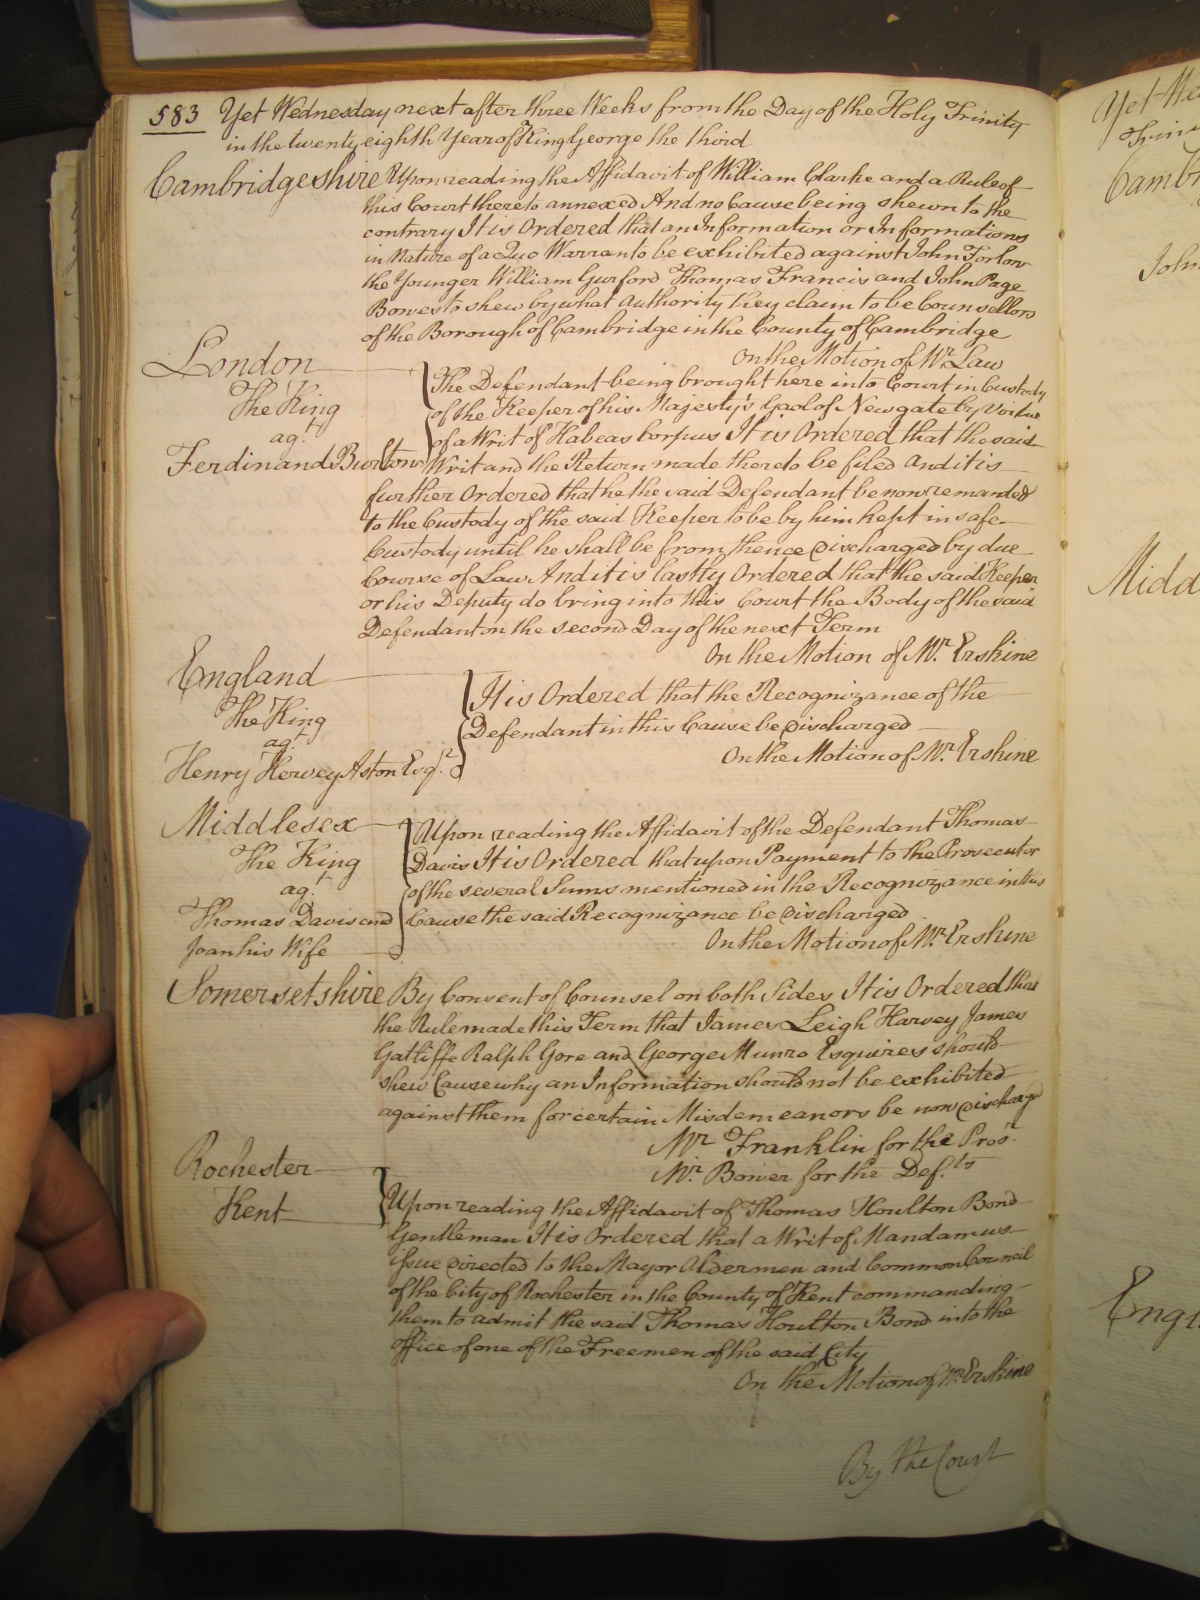 583 Yet Wednesday next after three Weeks from the Day of the Holy Trinity
in the twenty eighth Year of King George the third
Cambridgeshire Upon reading the Affidavit of William Clarke and a Rule of
this Court thereto annexed And no Cause being shewn to the
contrary It is Ordered that an Information or Informations
in Nature of a Quo Warranto be exhibited against John Forlow
the Younger William Gurford Thomas Francis and John Page
Bowes to shew by what Authority they claim to be Counsellors
of the Borough of Cambridge in the County of Cambridge
On the Motion of Mr. Law
London
The King
agt
Ferdinand Burton
The Defendant being brought here into Court in Custody
of the Keeper of his Majesty's Gaol of Newgate by Virtue
of a Writ of Habeas Corpus It is Ordered that the said
Writ and the Return made thereto be filed And it is
further Ordered that he the said Defendant be now remanded
to the Custody of the said Keeper to be by him kept in safe
Custody until he shall be from thence discharged by due
Course of Law And it is lastly Ordered that the said Keeper
or his Deputy do bring into this Court the Body of the said
Defendant on the second Day of the next Term
On the Motion of Mr. Erskine
England
The King
agt
Henry Hervey Aston Esqr.
It is Ordered that the Recognizance of the
Defendant in this Cause be discharged
On the Motion of Mr. Erskine
Middlesex
The King
agt
Thomas Davis and
Joan his Wife
Upon reading the Affidavit of the Defendant Thomas
Davis It is Ordered that upon Payment to the Prosecutor
of the several Sums mentioned in the Recognizance in this
Cause the said Recognizance be discharged
On the Motion of Mr. Erskine
Somersetshire By Consent of Counsel on both Sides It is Ordered that
the Rule made this Term that James Leigh Harvey James
Gatliffe Ralph Gore and George Munro Esquires should
shew Cause why an Information should not be exhibited
against them for certain Misdemeanors be now discharged
Mr Franklin for the Pros.r
Mr. Bower for the Def.ts
Rochester
Kent
Upon reading the Affidavit of Thomas Houlton Bond
Gentleman It is Ordered that a Writ of Mandamus
issue directed to the Mayor Aldermen and Common Council
of the City of Rochester in the County of Kent commanding
them to admit the said Thomas Houlton Bond into the
Office of one of the Freemen of the said City
On the Motion of Mr. Erskine
By the Court
Yet We
Trini
Camb
John
Midd
Engl